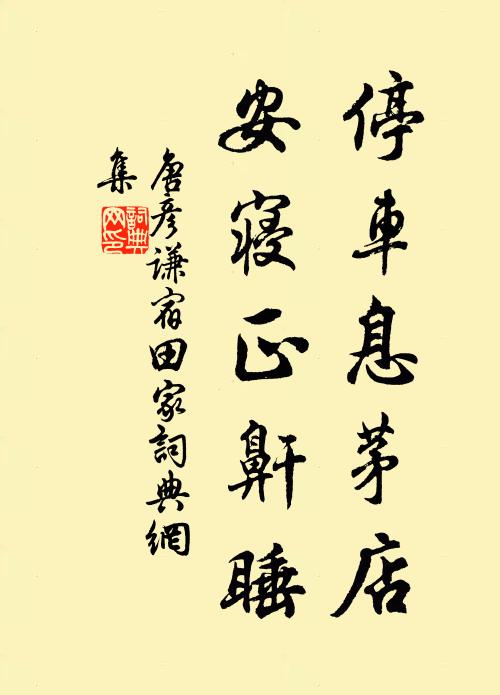 停車息茅店
安寢正鼾睡
唐彥謙宿田家詞典網
集
詞典
网印